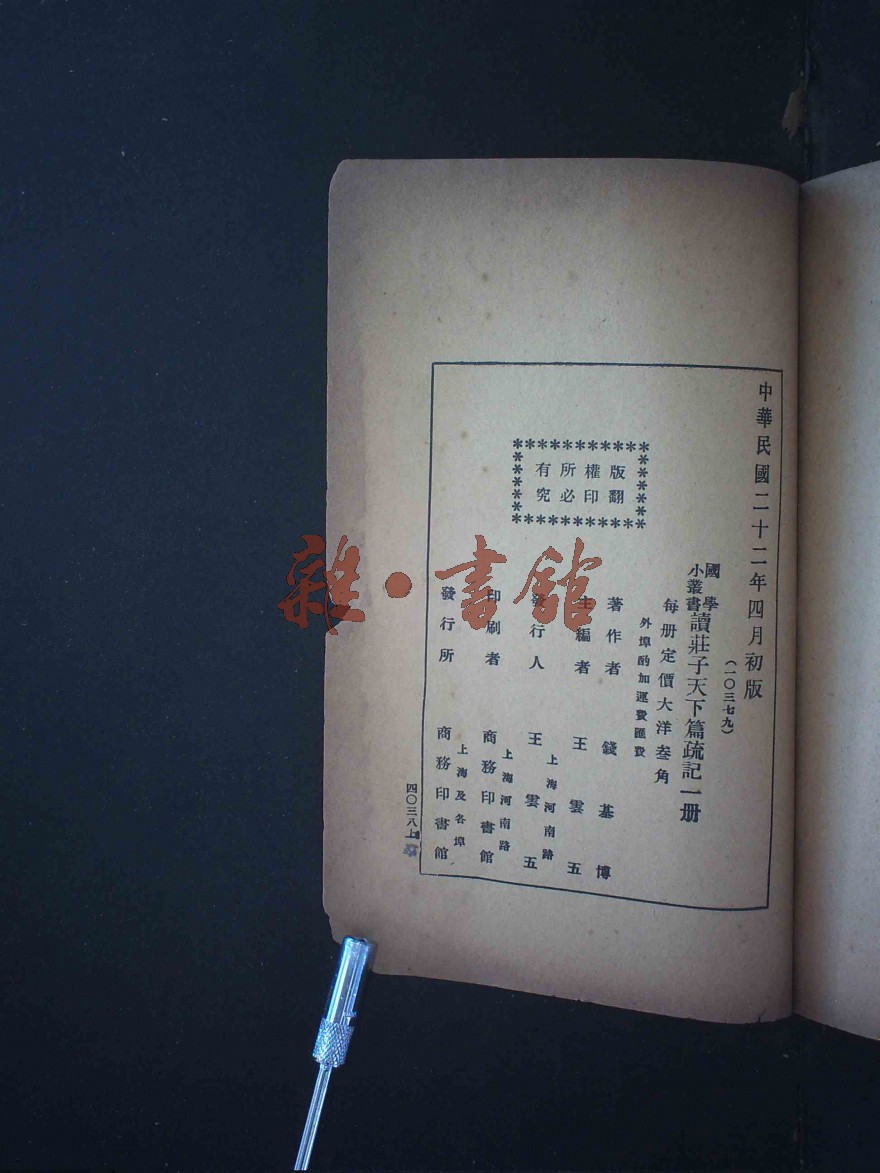 中華民國二十二年四月初版
(一〇三七九)
國學
小叢書
讀莊子天下篇疏記一册
每册定價大洋叁角
外埠酌加運費匯費
版權所有
翻印必究
著作者 錢基博
主編者 王雲五
上海河南路
發行人 王雲五
上海河南路
印刷者 商務印書館
上海及各埠
發行所 商務印書館
四〇三八上
雜·書館